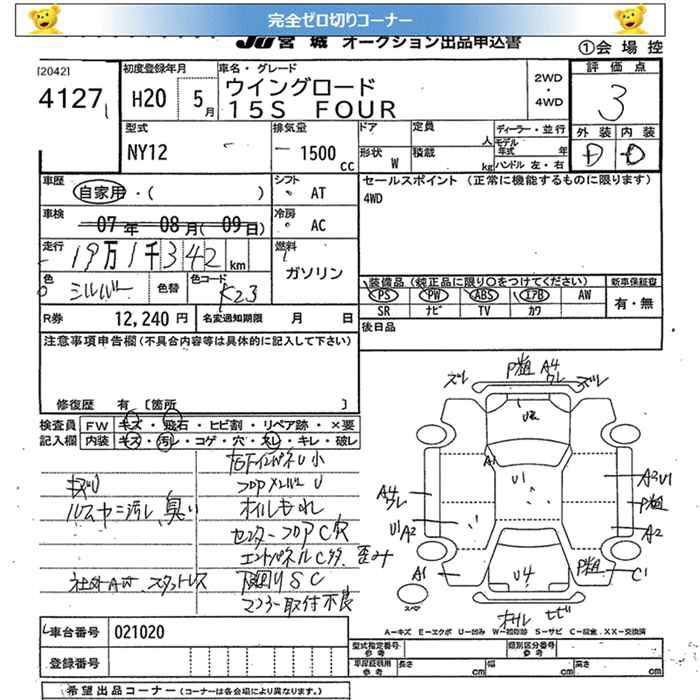 完全ゼロ切りコーナー
JU宮城 オークション出品申込書
①会場控
[2042]
4127
初度登録年月
H20 5月
車名・グレード
ウイングロード
15S FOUR
2WD
・
4WD
評価点
3
外装 内装
D D
型式
NY12
排気量
1500cc
ドア
定員 人
形状 W
積載 kg
ディーラー・並行
モデル年式 年
ハンドル 左・右
車歴
自家用・( )
シフト
AT
セールスポイント (正常に機能するものに限ります)
4WD
車検
07年 08月(09日)
冷房
AC
走行
19万1千342km
燃料
ガソリン
色
シルバー
色替
色コード
K23
装備品 (純正品に限り○をつけてください)
PS PW ABS エアB AW
SR ナビ TV カワ
新車保証書
有・無
R券 12,240円
名変通知期限 月 日
後日品
注意事項申告欄(不具合内容等は具体的に記入して下さい)
修復歴 有 〔箇所 〕
検査員記入欄
FW キズ・飛石・ヒビ割・リペア跡・×要
内装 キズ・汚レ・コゲ・穴・スレ・キレ・破レ
オイルもれ
センターフロアC穴
エンドパネルC穴 歪み
下回りSC
マフラー取付不良
社外AW スタットレス
ズレ P粗 A4 ワレ ズレ
U2
A1
U1
A4 ワレ
U1A2
A1
A2U1
P粗
A2
P粗
C1
U4
スペア
A−キズ E−エクボ U−凹み W−補修跡 S−サビ C−腐食 XX−交換済
車台番号 021020
登録番号
型式指定番号 参考
類別区分番号 参考
車庫証明用 参考
長さ cm
幅 cm
高さ cm
希望出品コーナー(コーナーは各会場により異なります。)